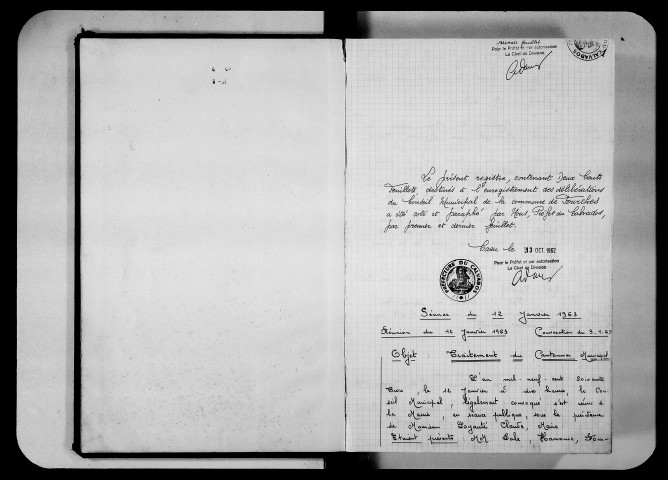 Premier feuillet
Pour le Préfet et par autorisation
Le Chef de Division
CALVADOS
Le présent registre, contenant Deux Cents
Feuillets, destinés à l'enregistrement des délibérations
du Conseil Municipal de la commune de Fourches
a été coté et paraphé par Nous, Préfet du Calvados,
par premier et dernier feuillet.
Caen le 13 OCT. 1962
Pour le Préfet et par autorisation
Le Chef de Division
PRÉFECTURE DU CALVADOS
Séance du 12 Janvier 1963
Réunion du 12 Janvier 1963 Convocation du 3.1.63
Objet : Traitement du Cantonnier Municipal
L'an mil-neuf-cent soixante
trois, le 12 Janvier à dix heures, le Con-
seil Municipal, légalement convoqué s'est réuni à
la Mairie, en séance publique, sous la présidence
de Monsieur Claude, Maire
Etaient présents MM